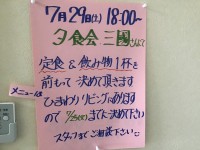 7月29日(土) 18:00〜
夕食会 三國さんにて
定食&飲み物1杯を
前もって決めて頂きます
メニューは
ひまわりリビングにあります
ので 7/25(火)までに決めて下さい
スタッフまでご相談下さい